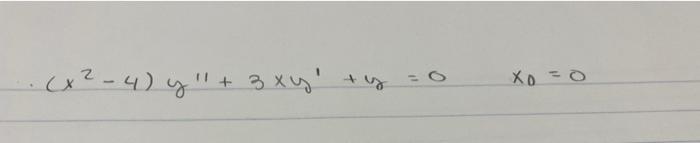 . (x² - 4) y'' + 3xy' + y = 0 x₀ = 0